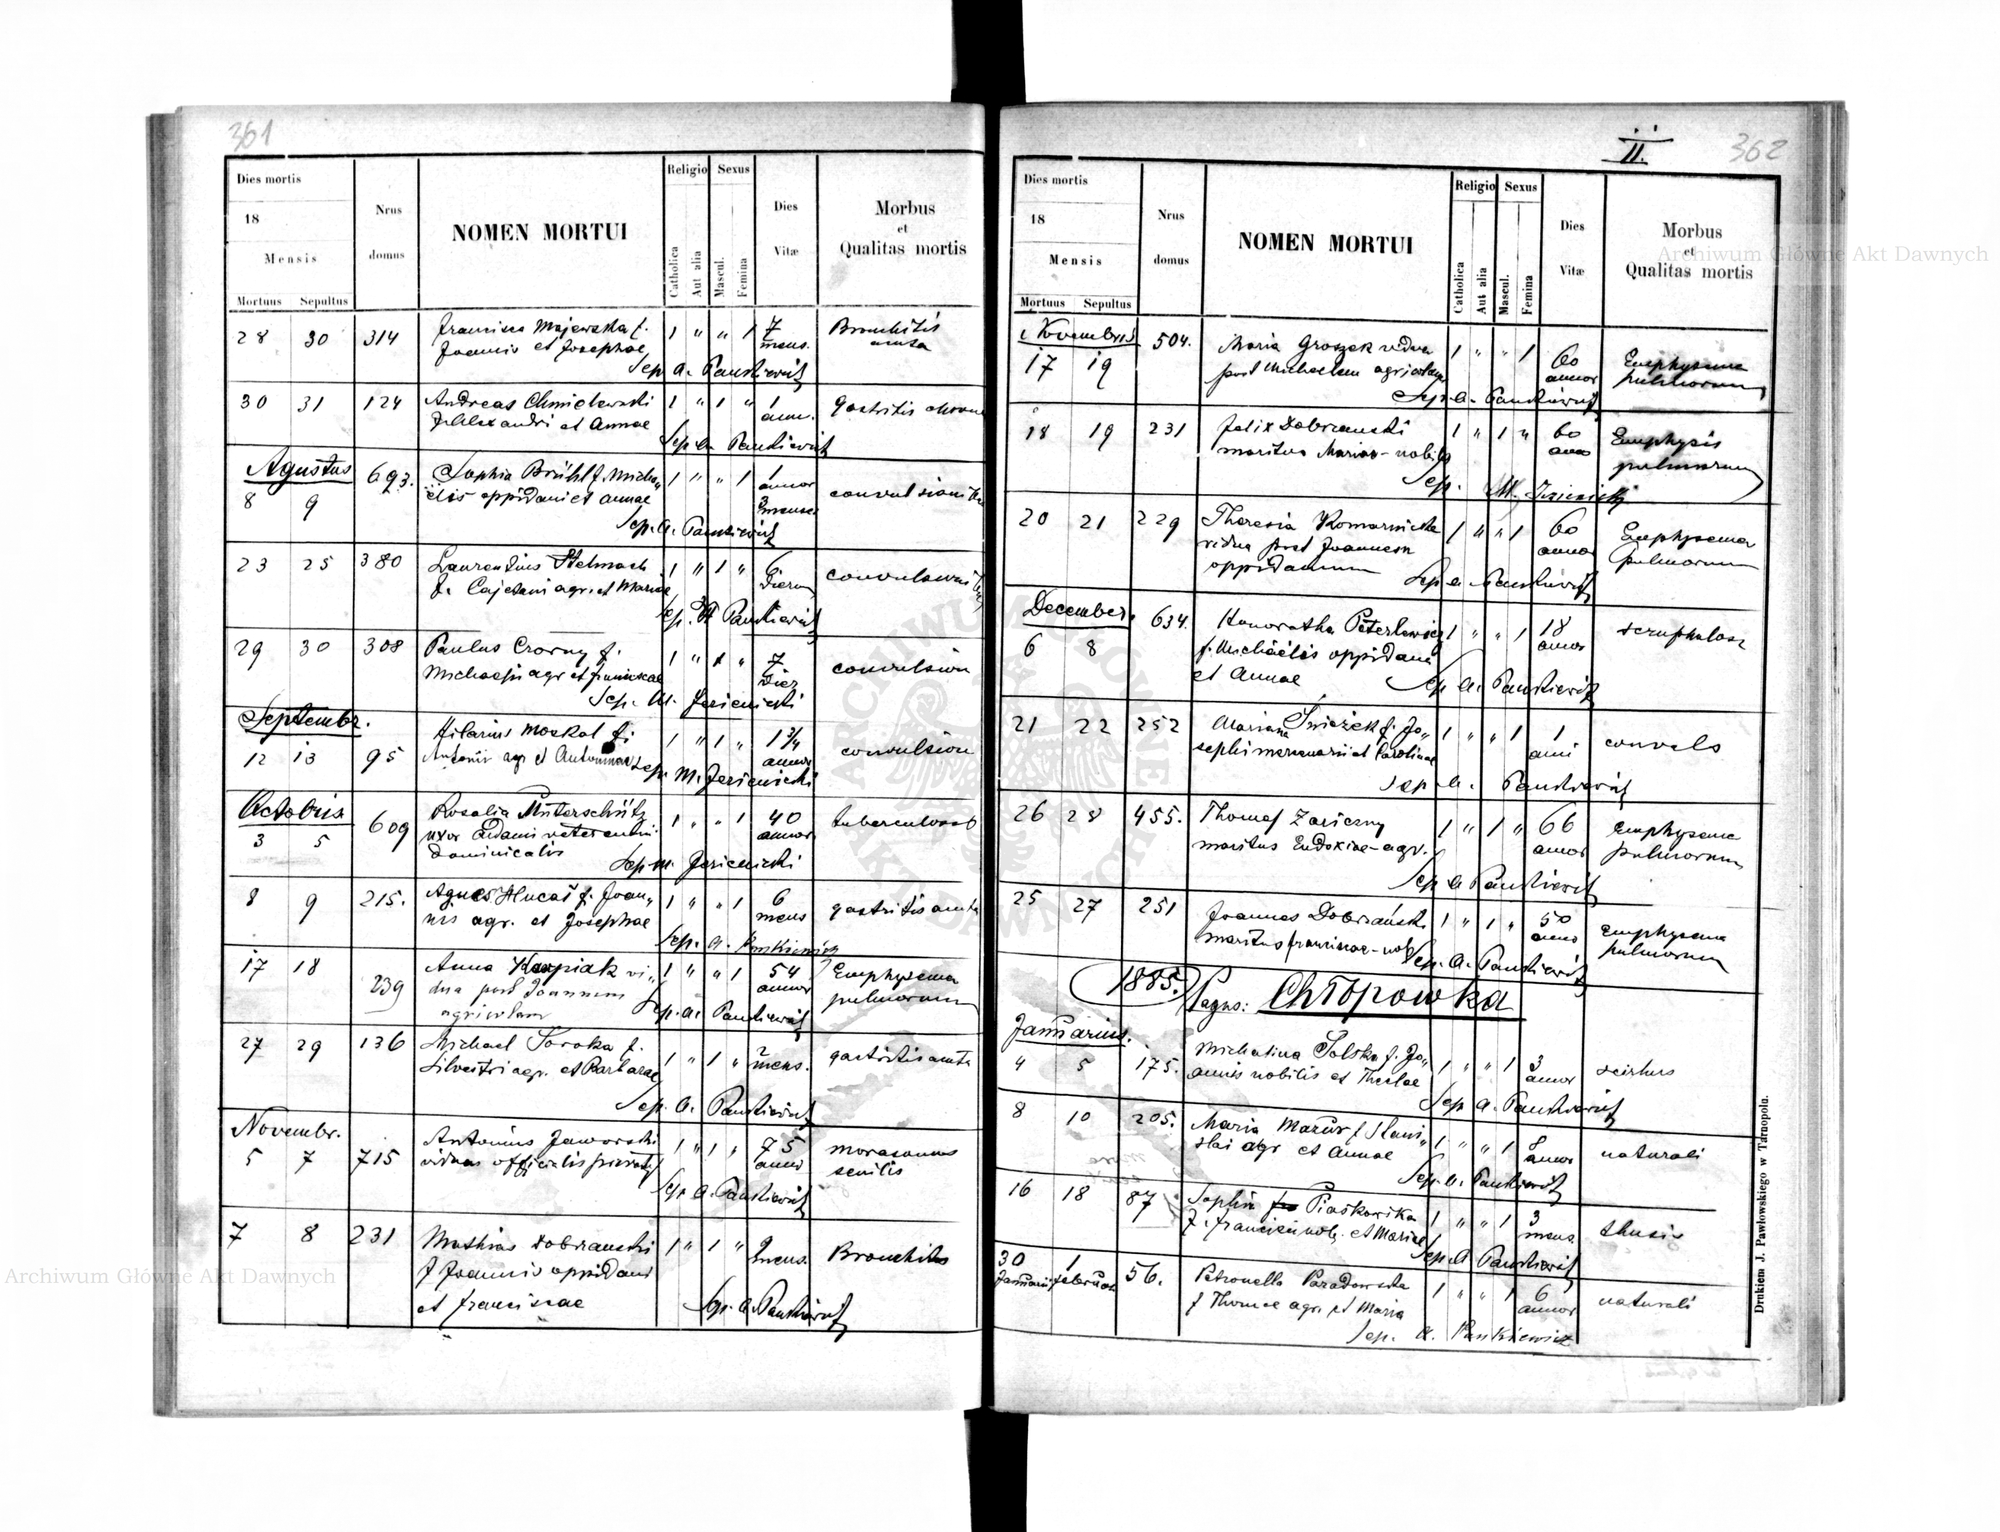 361
Dies mortis
18
Mensis
Mortuus Sepultus
Nrus
domus
NOMEN MORTUI
Religio
Catholica
Aut alia
Sexus
Mascul.
Femina
Dies
Vitæ
Morbus
et
Qualitas mortis
28 30 314 Francisca Majewska f. 1 " " 1 7 Bronchitis
Joannis et Josephae mens. acuta
Sep. A. Pankiewicz
30 31 124 Andreas Chmielewski 1 " 1 " 1 gastritis
f. Alexandri et Annae ann.
Sep. A. Pankiewicz
Agustus
8 9 693. Sophia Brühl f. Micha„ 1 " " 1 1 annor
ëlis oppidani et Annae 3 menses
Sep. A. Pankiewicz
23 25 380 Laurentius Stelmach 1 " 1 " 6
f. Cajetani agr. et Mariae dierum
Sep. A Pankiewicz
29 30 308 Paulus Czorny f. 1 " 1 " 7 convulsion
Michaelis agr et Franciscae dies
Sep. M. Jezienicki
Septembr.
12 13 95 Hilarius Moskal f. 1 " 1 " 1 3/4 convulsion
Antonii agr et Antoninae annor
Sep. M. Jezienicki
Octobris
3 5 609 Rosalia 1 " " 1 40
uxor Adami annor
dominicalis
Sep. M. Jezienicki
8 9 215. Agnes Hucał f. Joan„ 1 " " 1 6 gastritis acuta
nis agr. et Josephae mens
Sep. A. Pankiewicz
17 18 239 Anna Karpiak vi„ 1 " " 1 54 Emphysema
dua post Joannem annor pulmorum
agricolam
Sep. A. Pankiewicz
27 29 136 Michael Soroka f. 1 " 1 " 2 gastritis acuta
Silvestri agr. et Barbarae mens.
Sep. A. Pankiewicz
Novembr.
5 7 715 Antonius Jaworski 1 " 1 " 75 morasmus
viduus officialis annor senilis
Sep. A. Pankiewicz
7 8 231 Mathias Dobrzanski 1 " 1 " 2 Bronchitis
f Joannis oppidani mens.
et Franciscae
Sep. A. Pankiewicz
II.
362
Dies mortis
18
Mensis
Mortuus Sepultus
Nrus
domus
NOMEN MORTUI
Religio
Catholica
Aut alia
Sexus
Mascul.
Femina
Dies
Vitæ
Morbus
et
Qualitas mortis
Novembris
17 19 504. Maria Groszek vidua 1 " " 1 60 Emphysema
post Michaelem agricolam annor pulmorum
Sep. A. Pankiewicz
18 19 231 Felix Dobrzanski 1 " 1 " 60
maritus Mariae - nobilis pulmorum
Sep. M. Jezienicki
20 21 229 Theresia Komarnicka 1 " " 1 60 Emphysema
vidua post Joannem annor pulmorum
oppidanum
Sep. A. Pankiewicz
December.
6 8 634. Honoratha Peterlewicz 1 " " 1 18
f. Michäelis oppidani annor
et Annae
Sep. A. Pankiewicz
21 22 252 Mariana Świeżek f. Jo„ 1 " " 1 1 convuls
sephi mercenarii et Carolinae anni
Sep. A. Pankiewicz
26 28 455. Thomas Zariczny 1 " 1 " 66 Emphysema
maritus Eudoxiae - agr. annor pulmorum
Sep. A Pankiewicz
25 27 251 Joannes Dobrzański 1 " 1 " 50 Emphysema
maritus Franciscae - nob. annor pulmorum
Sep. A. Pankiewicz
1885. Pagus: Chropowka
Januarius.
4 5 175. Michalina Solska f. Jo„ 1 " " 1 3
annis nobilis et Theclae annor
Sep. A. Pankiewicz
8 10 205. Maria Mazur f Stani„ 1 " " 1 8 naturali
slai agr et Annae annor
Sep. A. Pankiewicz
16 18 87 Sophia Piaskowska 1 " " 1 3
f. Francisci nob. et Mariae mens.
Sep. A Pankiewicz
30 1 56. Petronella Paradowska 1 " " 1 6 naturali
Januarii Februar f Thomae agr. et Maria annor
Sep. A. Pankiewicz
Drukiem J. Pawłowskiego w Tarnopolu.
Archiwum Główne Akt Dawnych
Archiwum Główne Akt Dawnych
ARCHIWUM GŁÓWNE AKT DAWNYCH